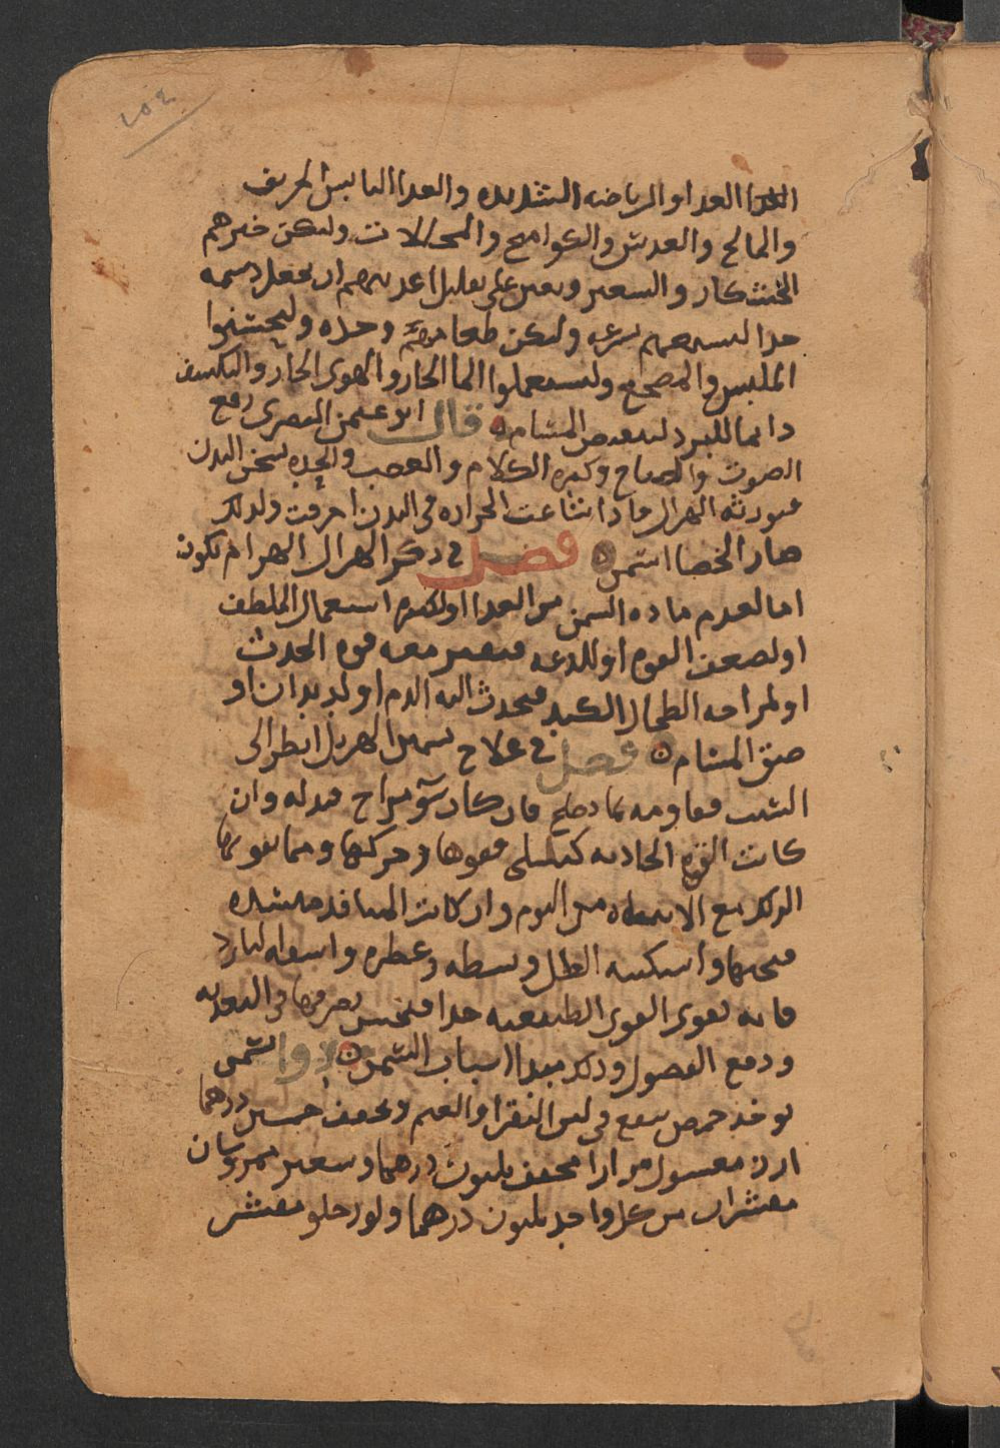 ٢٥٤
الغدا او الرياضه الشديده والغدا اليابس الحريف
والمالح والعدس والكوامخ والمخللات وليكن خبزهم
الخشكار والشعير ويعين على تقليل اغديتهم ان يجعل دسمه
جدا ليشبعهم بسرعه وليكن طعامهم وحده وليخشنوا
الملبس والمضجع وليستعملوا الما الحار والهوى الحار والتكشف
دايما للبرد المسام قال ابو البصرى رفع
الصوت والصياح وكثره الكلام والغضب والحده يسخن البدن
فيورثه الهزال فاذا الحراره فى البدن احرقت ولذلك
صار الخصا اسمن فصل فى ذكر الهزال الهزال يكون
اما لعدم ماده السمن من الغدا او لكثره استعمال الملطف
او لضعف القوه او معه قوه الحدث
او لمزاحمه الطحال الكبد الدم او لديدان او
ضيق المسام فصل فى علاج تسمين الهزيل انظر الى
السبب فقاومه بما يصلح فان كان سو مزاج فبدله وان
كانت القوه الجاذبه كسلى فقوها وحركها ومما يقويها
الدلك مع الاستعاده من النوم وان كانت المنافذ منسده
ففتحها واسكنه الظل وبسطه وعطره واسقه البارد
فانه يقوى القوى الطبيعيه جدا فيحسن تصرفها فى التغديه
ودفع الفضول وذلك مبدا اسباب السمن دوا يسمن
يوخذ حمص ينقع فى لبن البقر او الغنم ويجفف خمسين درهما
ارز مغسول مرارا مجفف ثلثون درهما وشعير
مقشران من كل واحد ثلثون درهما ولوز حلو مقشر